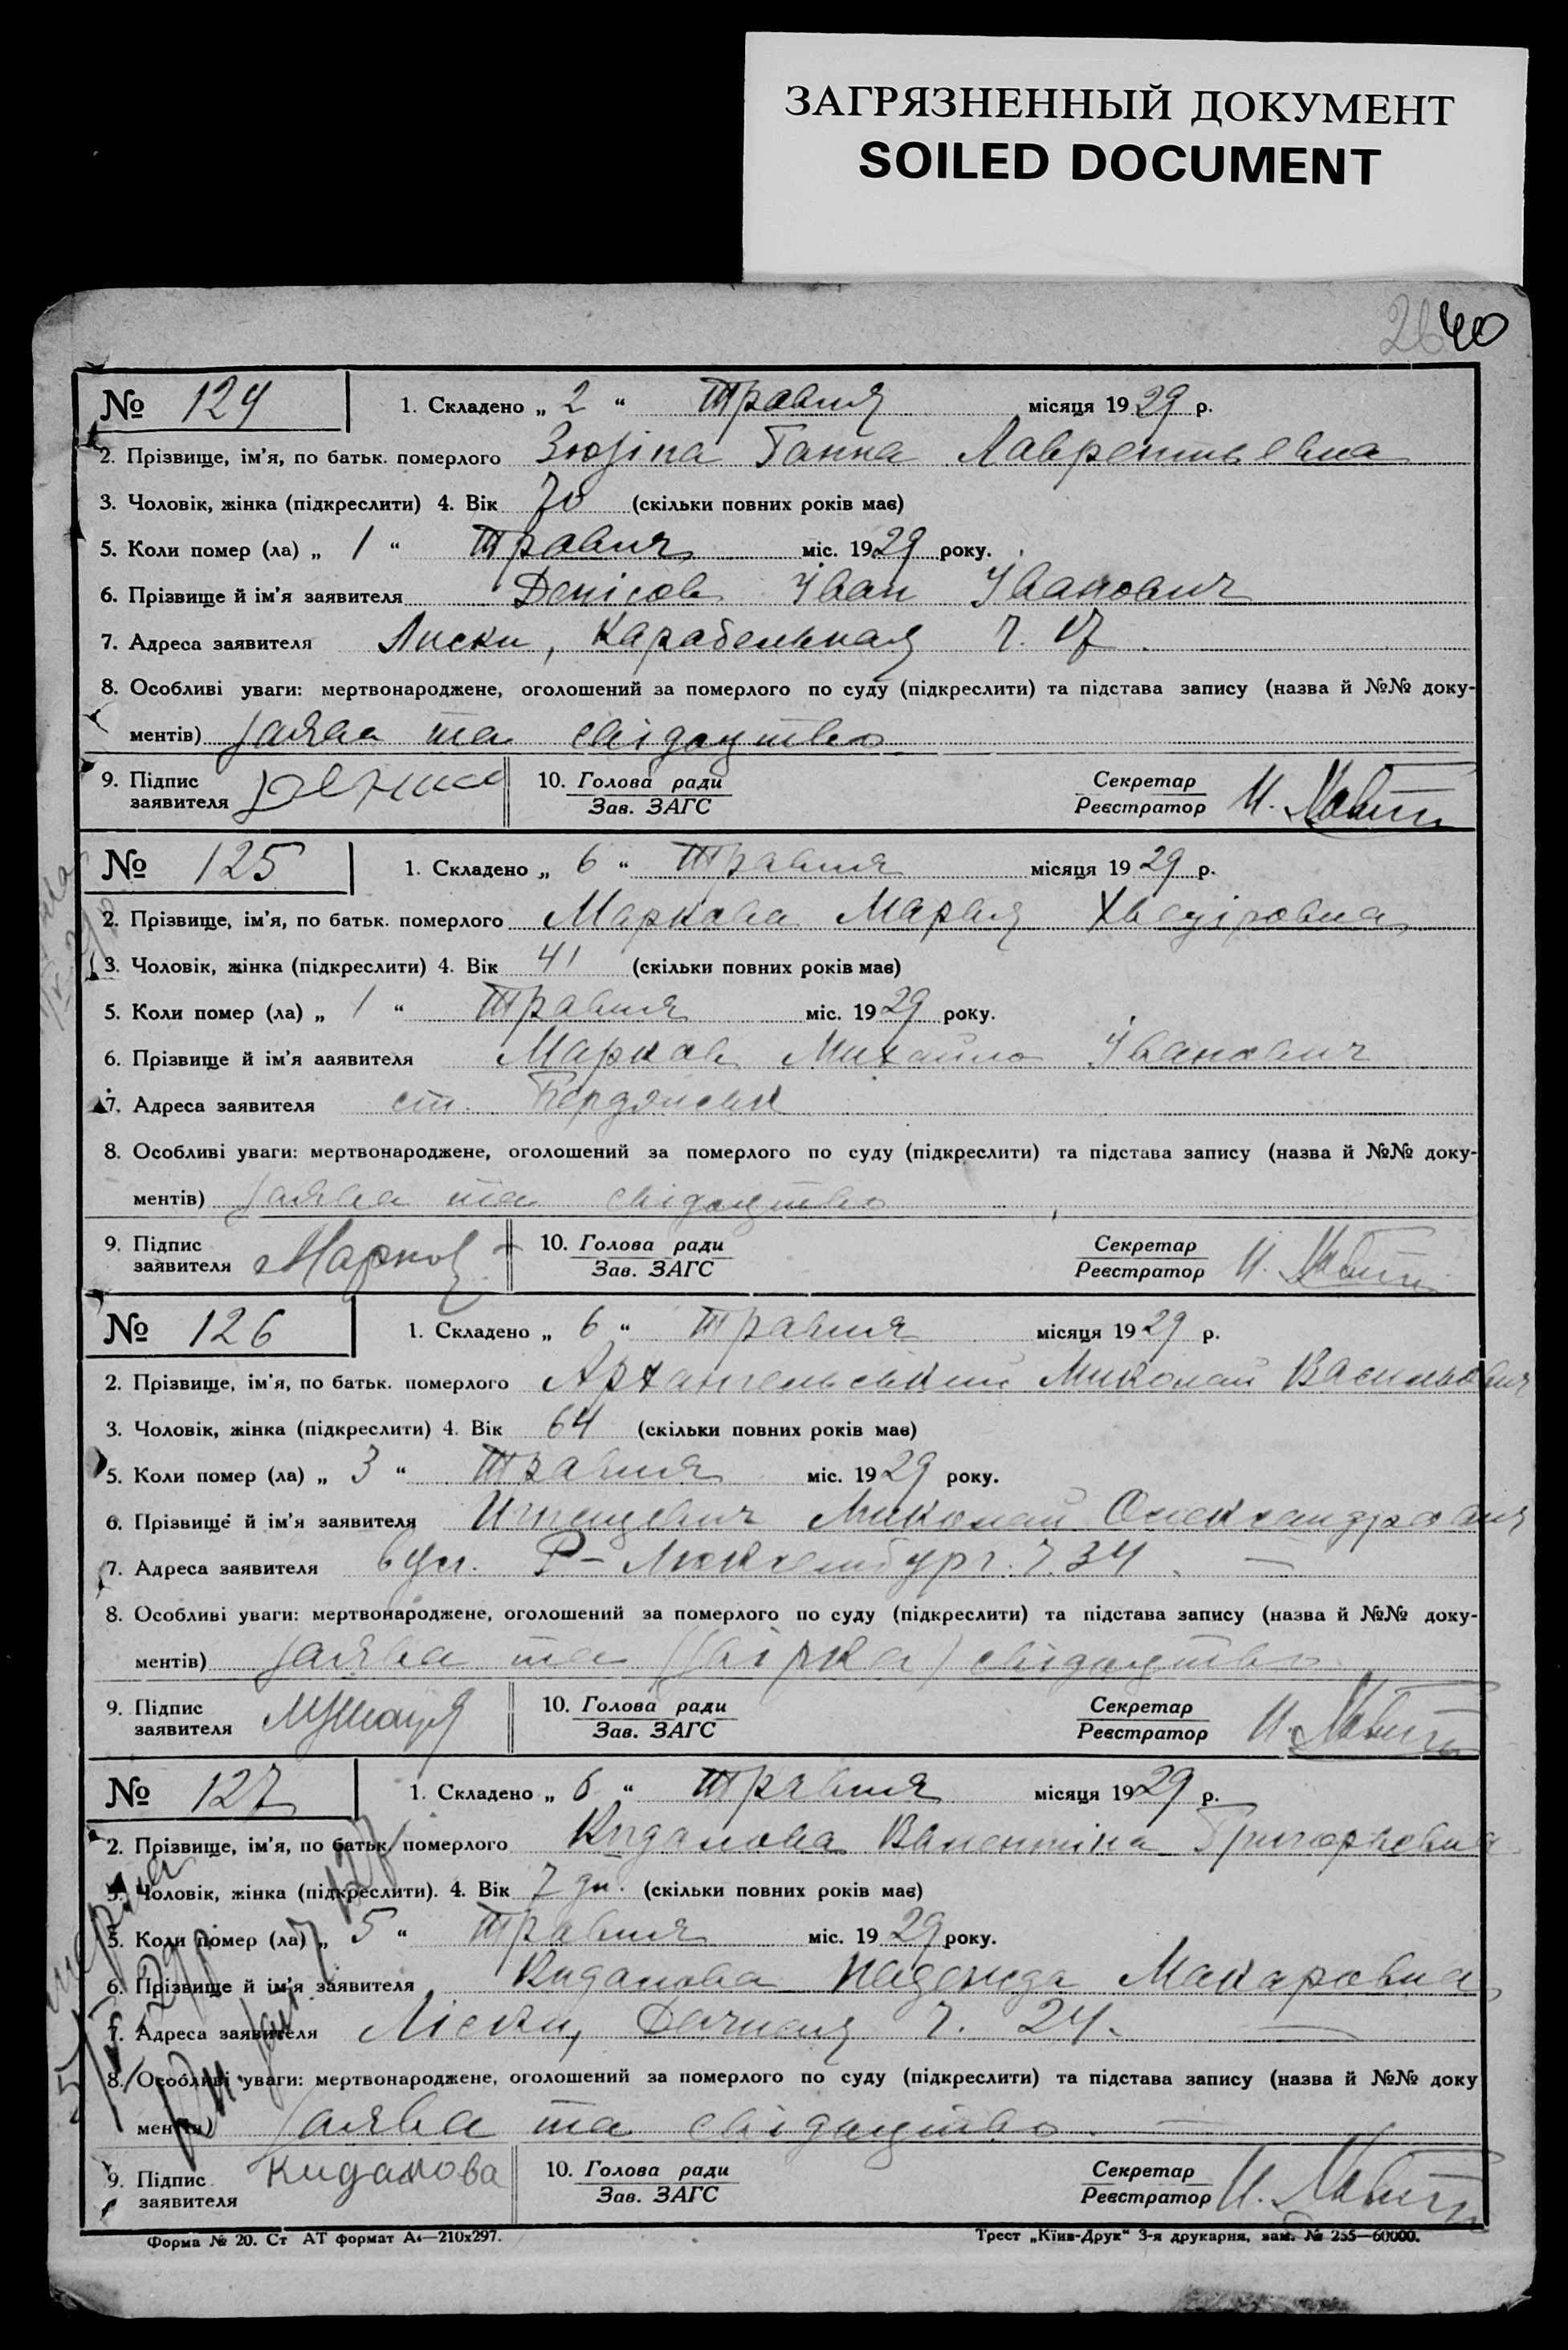 ЗАГРЯЗНЕННЫЙ ДОКУМЕНТ
SOILED DOCUMENT
40
№ 124 1. Складено „ 2 “ Травня місяця 1929 р.
2. Прізвище, ім’я, по батьк. померлого Зюзіна Ганна Лаврентьевна
3. Чоловік, жінка (підкреслити) 4. Вік 70 (скільки повних років має)
5. Коли помер (ла) „ 1 “ Травня міс. 1929 року.
6. Прізвище й ім’я заявителя Денісов Іван Іванович
7. Адреса заявителя Лиски, Карабельная ч. 17
8. Особливі уваги: мертвонароджене, оголошений за померлого по суду (підкреслити) та підстава запису (назва й №№ доку-
ментів) Заява та свідоцтво
9. Підпис заявителя 10. Голова ради Секретар
Зав. ЗАГС Реєстратор И.
№ 125 1. Складено „ 6 “ Травня місяця 1929 р.
2. Прізвище, ім’я, по батьк. померлого Маркова Марья Хведіровна
3. Чоловік, жінка (підкреслити) 4. Вік 41 (скільки повних років має)
5. Коли помер (ла) „ 1 “ Травня міс. 1929 року.
6. Прізвище й ім’я заявителя Марков Михайло Іванович
7. Адреса заявителя ст. Бердянськ
8. Особливі уваги: мертвонароджене, оголошений за померлого по суду (підкреслити) та підстава запису (назва й №№ доку-
ментів) Заява та свідоцтво
9. Підпис заявителя Марков 10. Голова ради Секретар
Зав. ЗАГС Реєстратор И.
№ 126 1. Складено „ 6 “ Травня місяця 1929 р.
2. Прізвище, ім’я, по батьк. померлого Архангельський Миколай Васильович
3. Чоловік, жінка (підкреслити) 4. Вік 64 (скільки повних років має)
5. Коли помер (ла) „ 3 “ Травня міс. 1929 року.
6. Прізвище й ім’я заявителя Миколай Олександрович
7. Адреса заявителя Р-Люксембург. ч. 34
8. Особливі уваги: мертвонароджене, оголошений за померлого по суду (підкреслити) та підстава запису (назва й №№ доку-
ментів) Заява та свідоцтво
9. Підпис заявителя 10. Голова ради Секретар
Зав. ЗАГС Реєстратор И.
№ 127 1. Складено „ 6 “ Травня місяця 1929 р.
2. Прізвище, ім’я, по батьк. померлого Кидалова Валентіна Григорьевна
3. Чоловік, жінка (підкреслити). 4. Вік 7 дн. (скільки повних років має)
5. Коли помер (ла) „ 5 “ Травня міс. 1929 року.
6. Прізвище й ім’я заявителя Кидалова Надежда Макаровна
7. Адреса заявителя Ліски, Дачная ч. 24.
8. Особливі уваги: мертвонароджене, оголошений за померлого по суду (підкреслити) та підстава запису (назва й №№ доку
ментів) Заява та свідоцтво
9. Підпис заявителя Кидалова 10. Голова ради Секретар
Зав. ЗАГС Реєстратор И.
Форма № 20. Ст АТ формат А4—210х297. Трест „Київ-Друк“ 3-я друкарня, зам. № 255—60000.